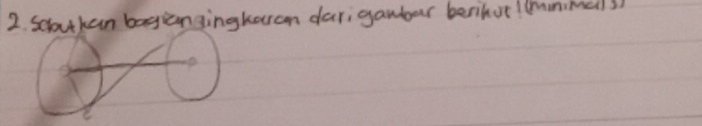 2. Sebutkan bagian lingkaran dari gambar berikut! (minimal 3)